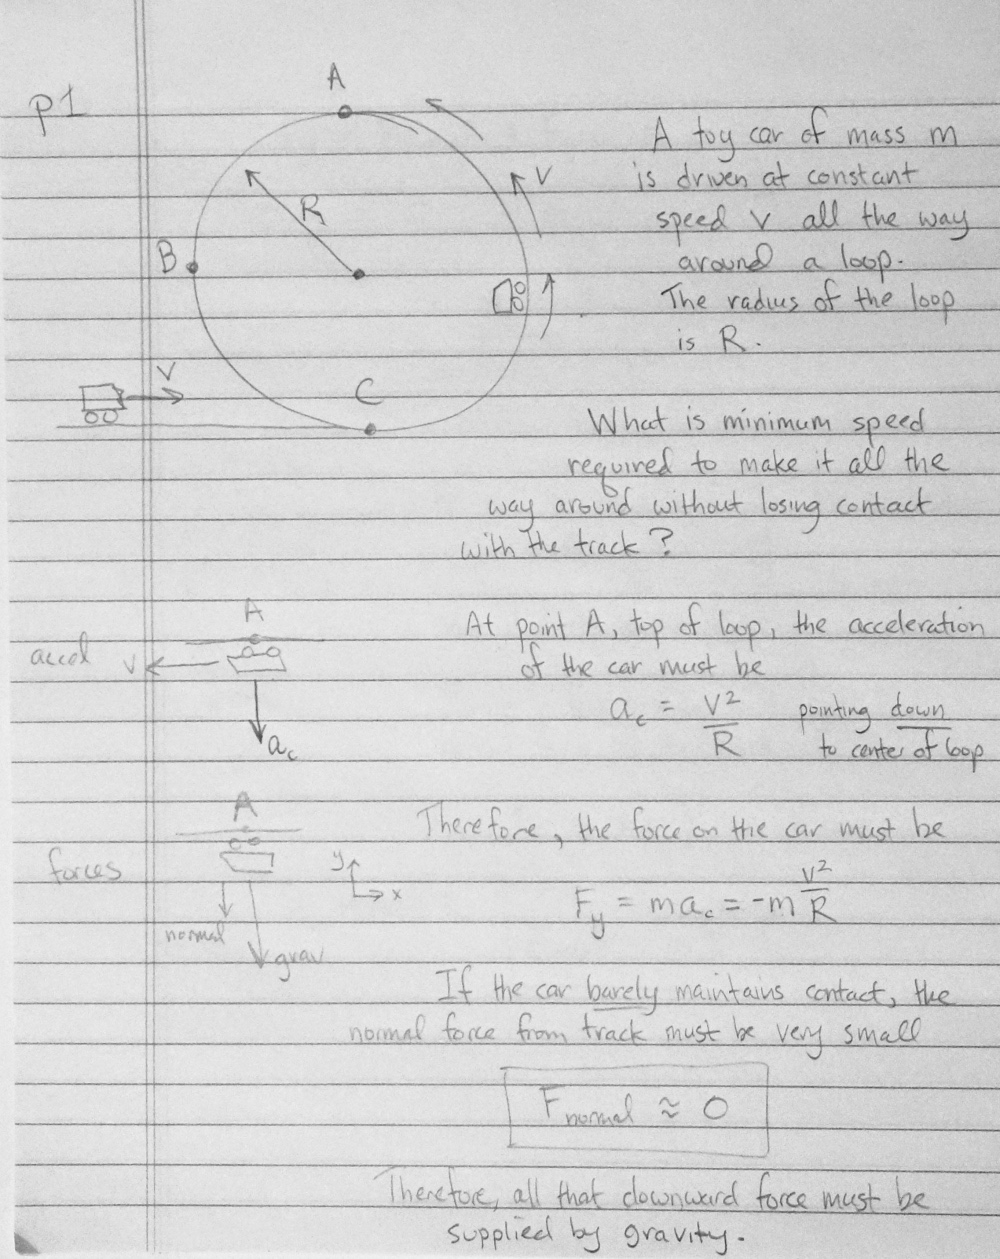 p1
A
A toy car of mass m
is driven at constant
speed v all the way
around a loop.
The radius of the loop
is R.
V
R
B
V
C
What is minimum speed
required to make it all the
way around without losing contact
with the track?
A
accel
V
a_c
At point A, top of loop, the acceleration
of the car must be
a_c = V²/R pointing down
to center of loop
A
forces
y
x
normal
grav
Therefore, the force on the car must be
F_y = ma_c = -m V²/R
If the car barely maintains contact, the
normal force from track must be very small
F_normal ≈ 0
Therefore, all that downward force must be
supplied by gravity.